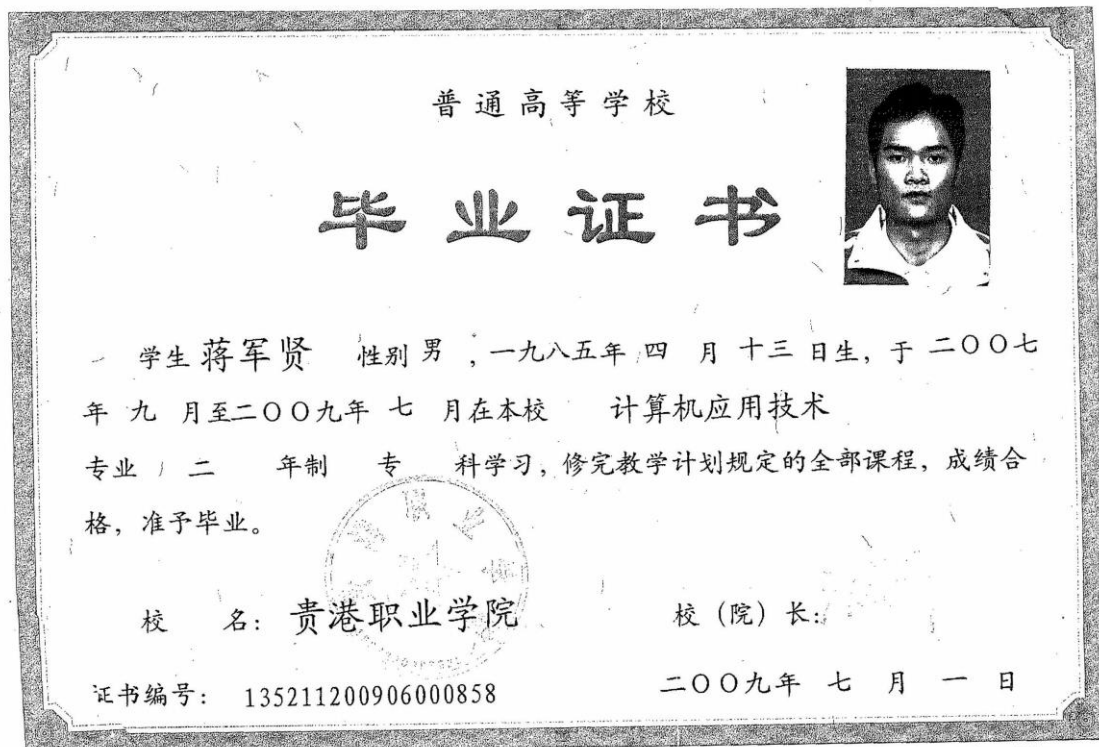 普通高等学校
毕业证书
学生 蒋军贤 性别 男 ,一九八五年 四 月 十三 日生, 于 二〇〇七
年 九 月至二〇〇九年 七 月在本校 计算机应用技术
专业 二 年制 专 科学习, 修完教学计划规定的全部课程, 成绩合
格, 准予毕业。
校 名: 贵港职业学院 校 (院) 长:
证书编号: 135211200906000858 二〇〇九年 七 月 一 日